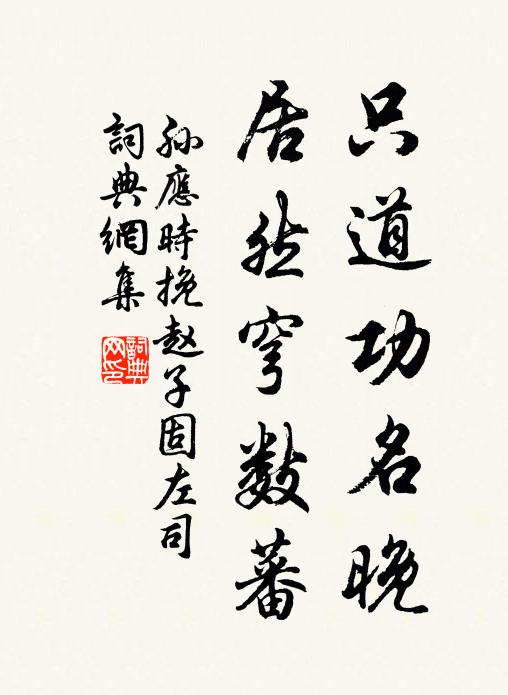 只道功名晚
居然穹数蕃
孙應時挽赵子固左司
詞典網集
詞典
网印